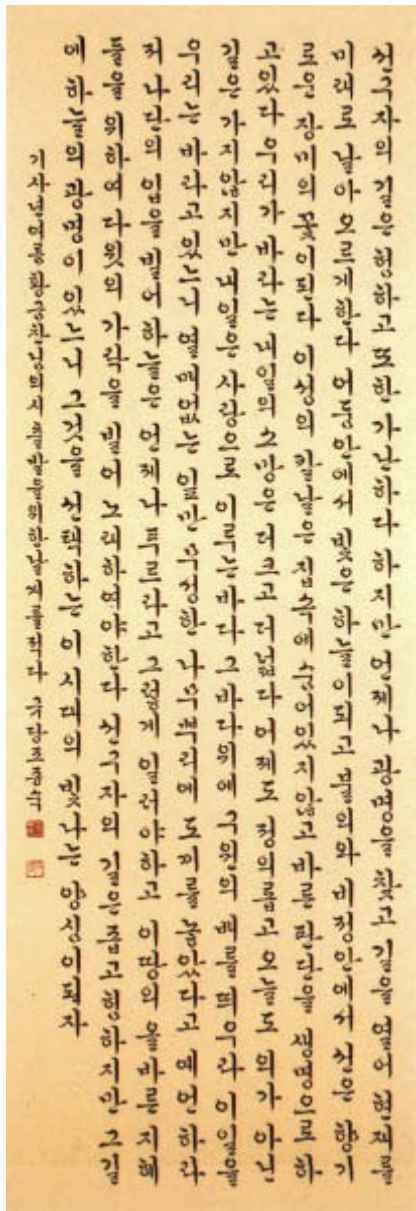 선구자의 길은 험하고 또한 가난하다 하지만 언제나 광명을 찾고 길을 열어 현재를
미래로 날아 오르게한다 어둠안에서 빛은 하늘이되고 불의와 비정안에서 선은 향기
로운 장미의 꽃이된다 이성의 칼날은 집속에 숨어있지않고 바른 판단을 생명으로 하
고있다 우리가 바라는 내일의 소망은 더크고 더넓다 어제도 정의롭고 오늘도 의가 아닌
길은 가지않지만 내일은 사랑으로 이르는바다 그바다위에 구원의 배를 띄우라 이일을
우리는 바라고 있느니 열매없는 잎만 무성한 나무뿌리에 도끼를 놓았다고 예언하라
저 나단의 입을 빌어 하늘은 언제나 푸르라고 그렇게 일러야하고 이땅의 올바른 지혜
들을 위하여 다윗의 가락을 빌어 노래하여야한다 선구자의 길은 좁고 험하지만 그길
에 하늘의 광명이 있느니 그것을 선택하는 이 시대의 빛나는 양심이되자
기사년여름 황금찬님의시 날개를적다 조종숙